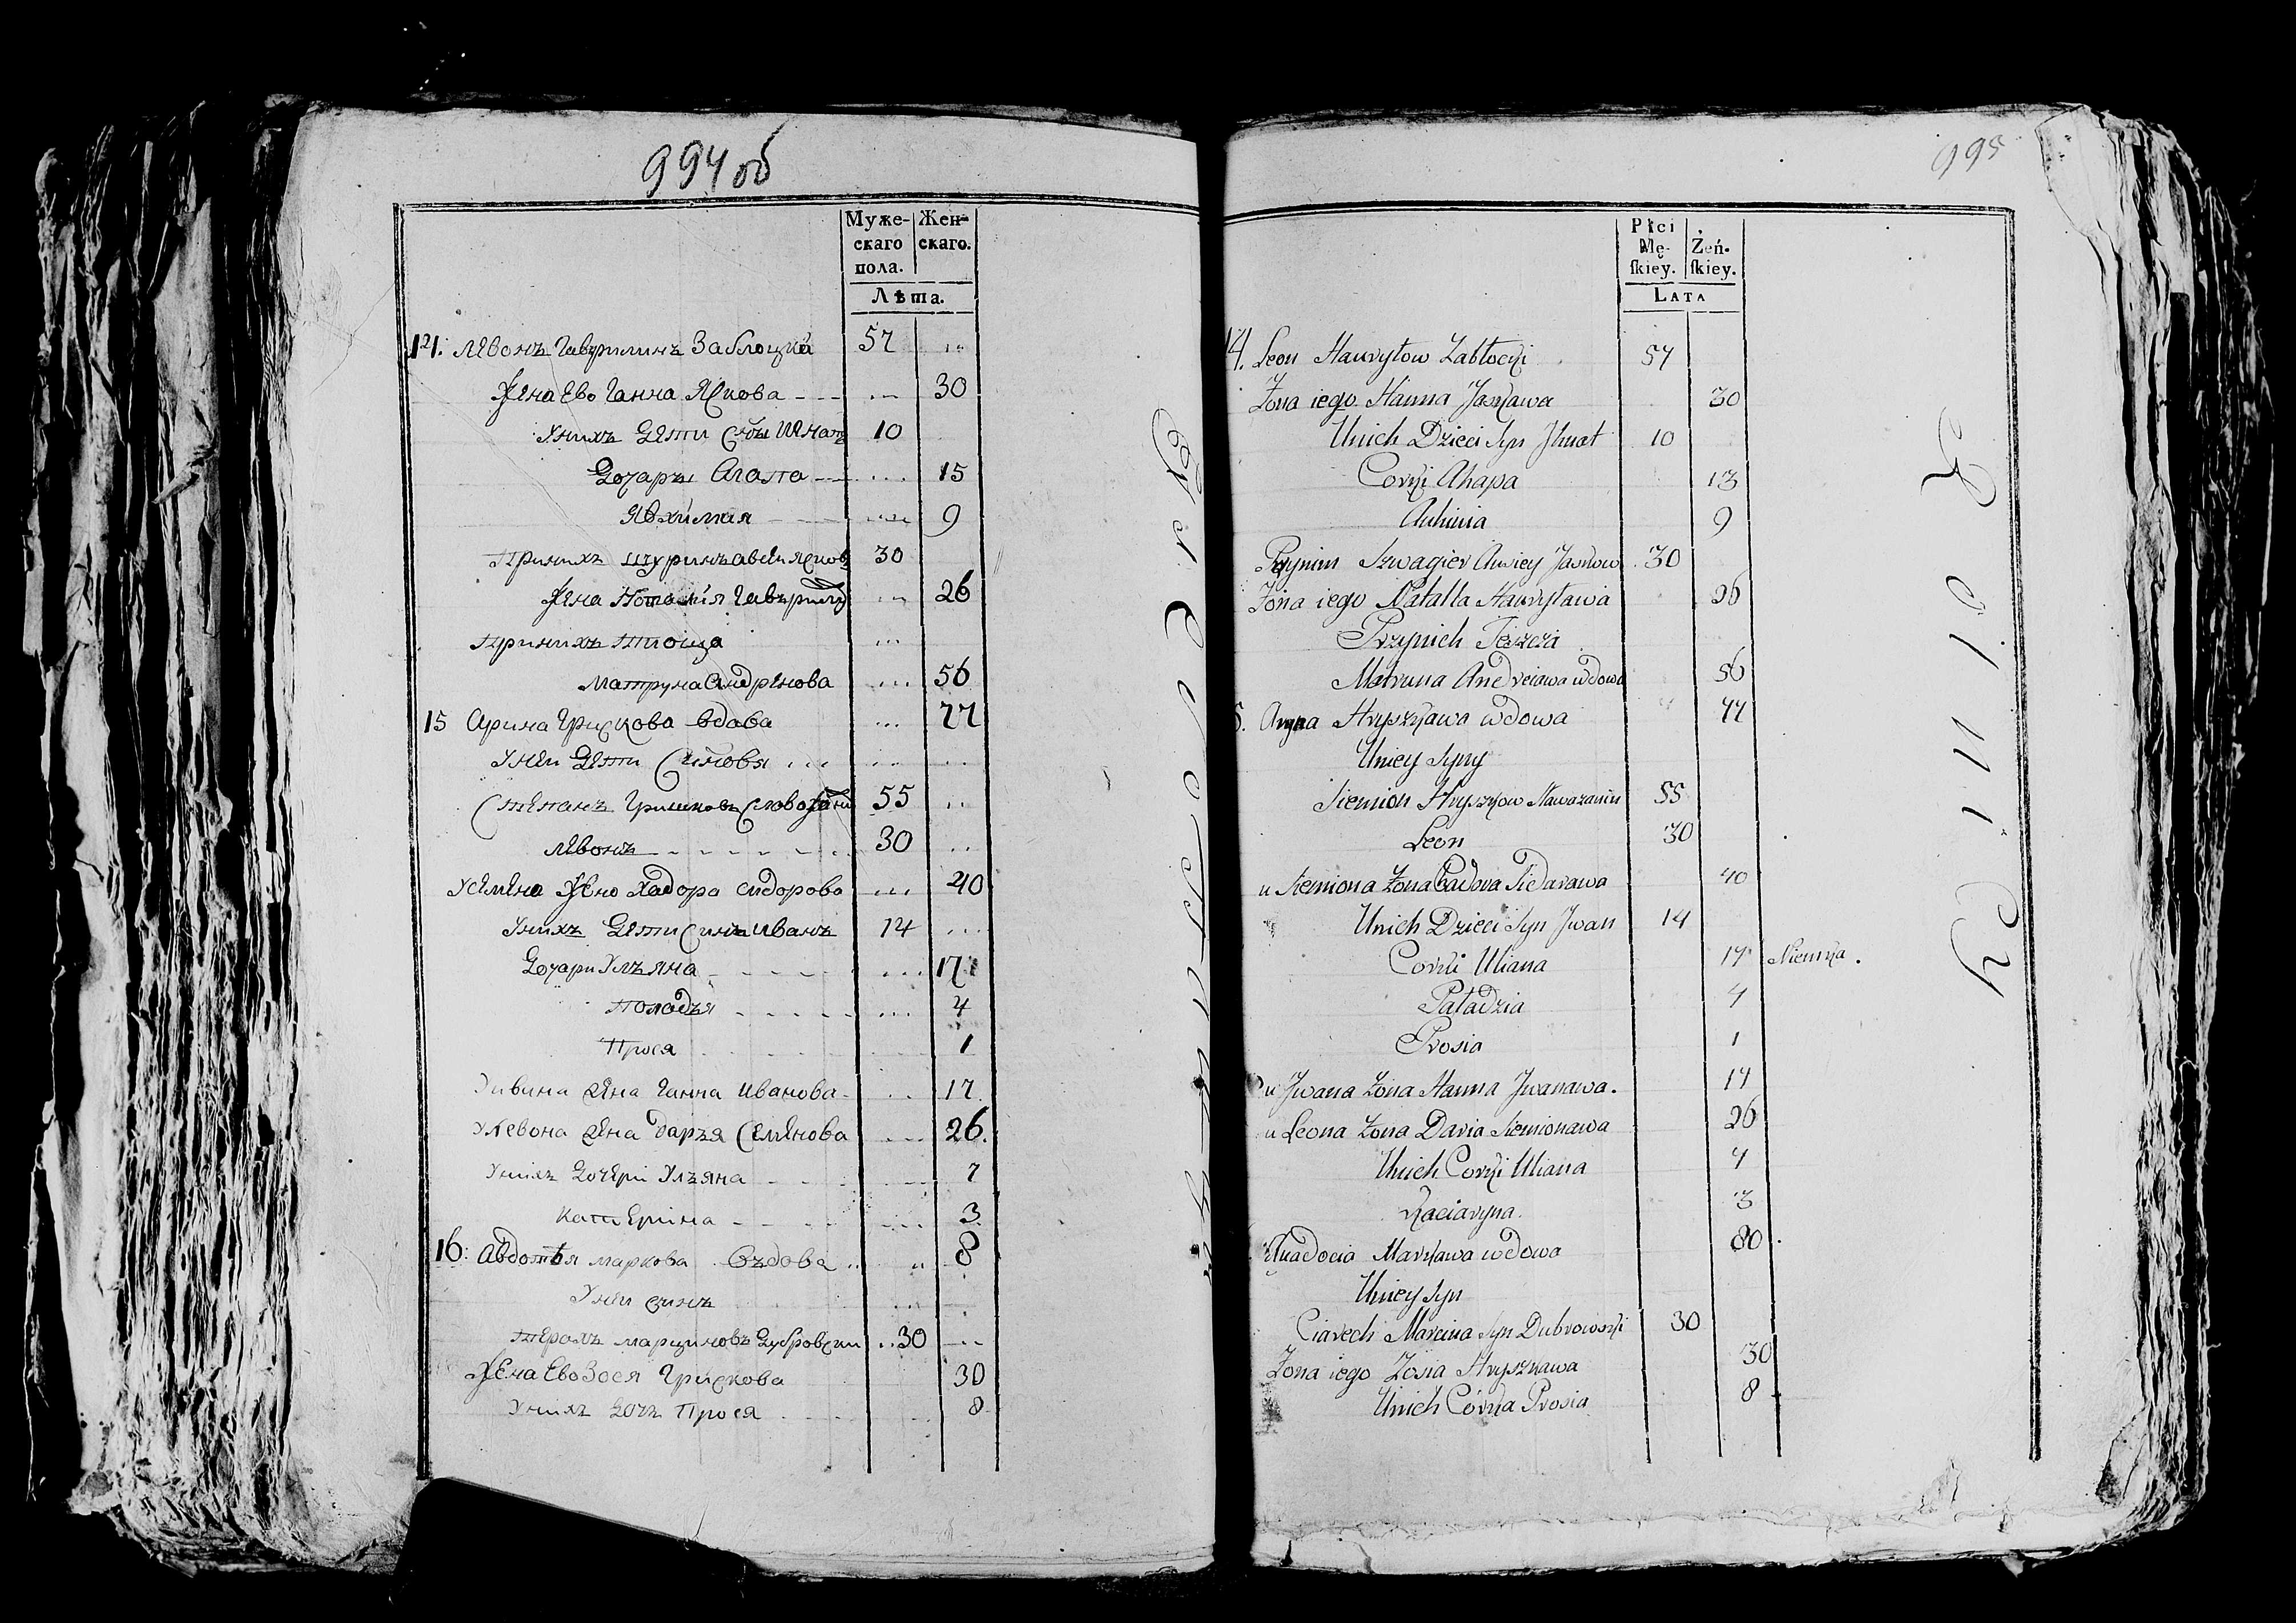 994 об
Муже- Жен-
скаго скаго.
пола.
Лѣта.
14. Левонъ Гаврилинъ Заблоцкй 57 ...
Жена Ево Ганна Яскова --- ... 30
Унихъ Дети Снъ Игнатъ 10
Дочаръ Агапа --- ... 15
Явхимия --- ... 9
Принихъ шуринъ Авсѣй Ясковъ 30
Жена Наталія Гаврилов ... 26
Принихъ тиоща ...
Матруна Андреюва ... 56
15 Арина Грискова вдова ... 77
Уней Дети Синовя ... ... ...
Степанъ Гришковъ 55 ..
Левонъ - - - - - - 30 ..
Усемена Жено Хадора Сидорово ... 40
Унихъ Дети Синъ Иванъ 14 ...
Дочари Улъяна - - - - ... 17
Поладзя - - - - - ... 4
Прося 1
Уивана Жена Ганна Иванова - .. 17
Улевона Жена Даръя Семенова ... 26.
Унихъ Дочери Улъяна - - - - ... 7
Катерина - - - - ... 3
16: Авдотѣя Маркова Въдова .. „ 8
Уней синъ ...
Терахъ Марциновъ Дубровски .. 30 ...
Жена Ево Зося Грискова 30
Унихъ Дочъ Прося 8
995
Płci
Mę- Żeń-
ſkiey. ſkiey.
LATA
14. Leon Hauryłow Zabłocki 57
Żona iego Hanna Jaskawa 30
Unich Dzieci Syn Jhnat 10
Corki Ahapa 13
Auhinia 9
Prynim Szwagier Awsiey Jaskow 30
Żona iego Natalla Hauryława 26
Przynich Teszcza
Matruna Andreiawa wdowa 56
5. Aryna Hryszkawa wdowa 77
Uniey Syny
Siemion Hryszkow Sławazanin 55
Leon 30
u Siemiona Żona Chadora Sidarawa 40
Unich Dzieci Syn Jwan 14
Corki Uliana 17 Niemka.
Paładzia 4
Prosia 1
u Jwana Żona Hanna Jwanawa. 17
u Leona Żona Daria Siemionawa 26
Unich Corki Uliana 7
Kaciaryna 3
Auadocia Markawa wdowa 80.
Uniey Syn
Ciarech Marcina Syn Dubrowski 30
Żona iego Zosia Hryszkawa 30
Unich Córka Prosia 8